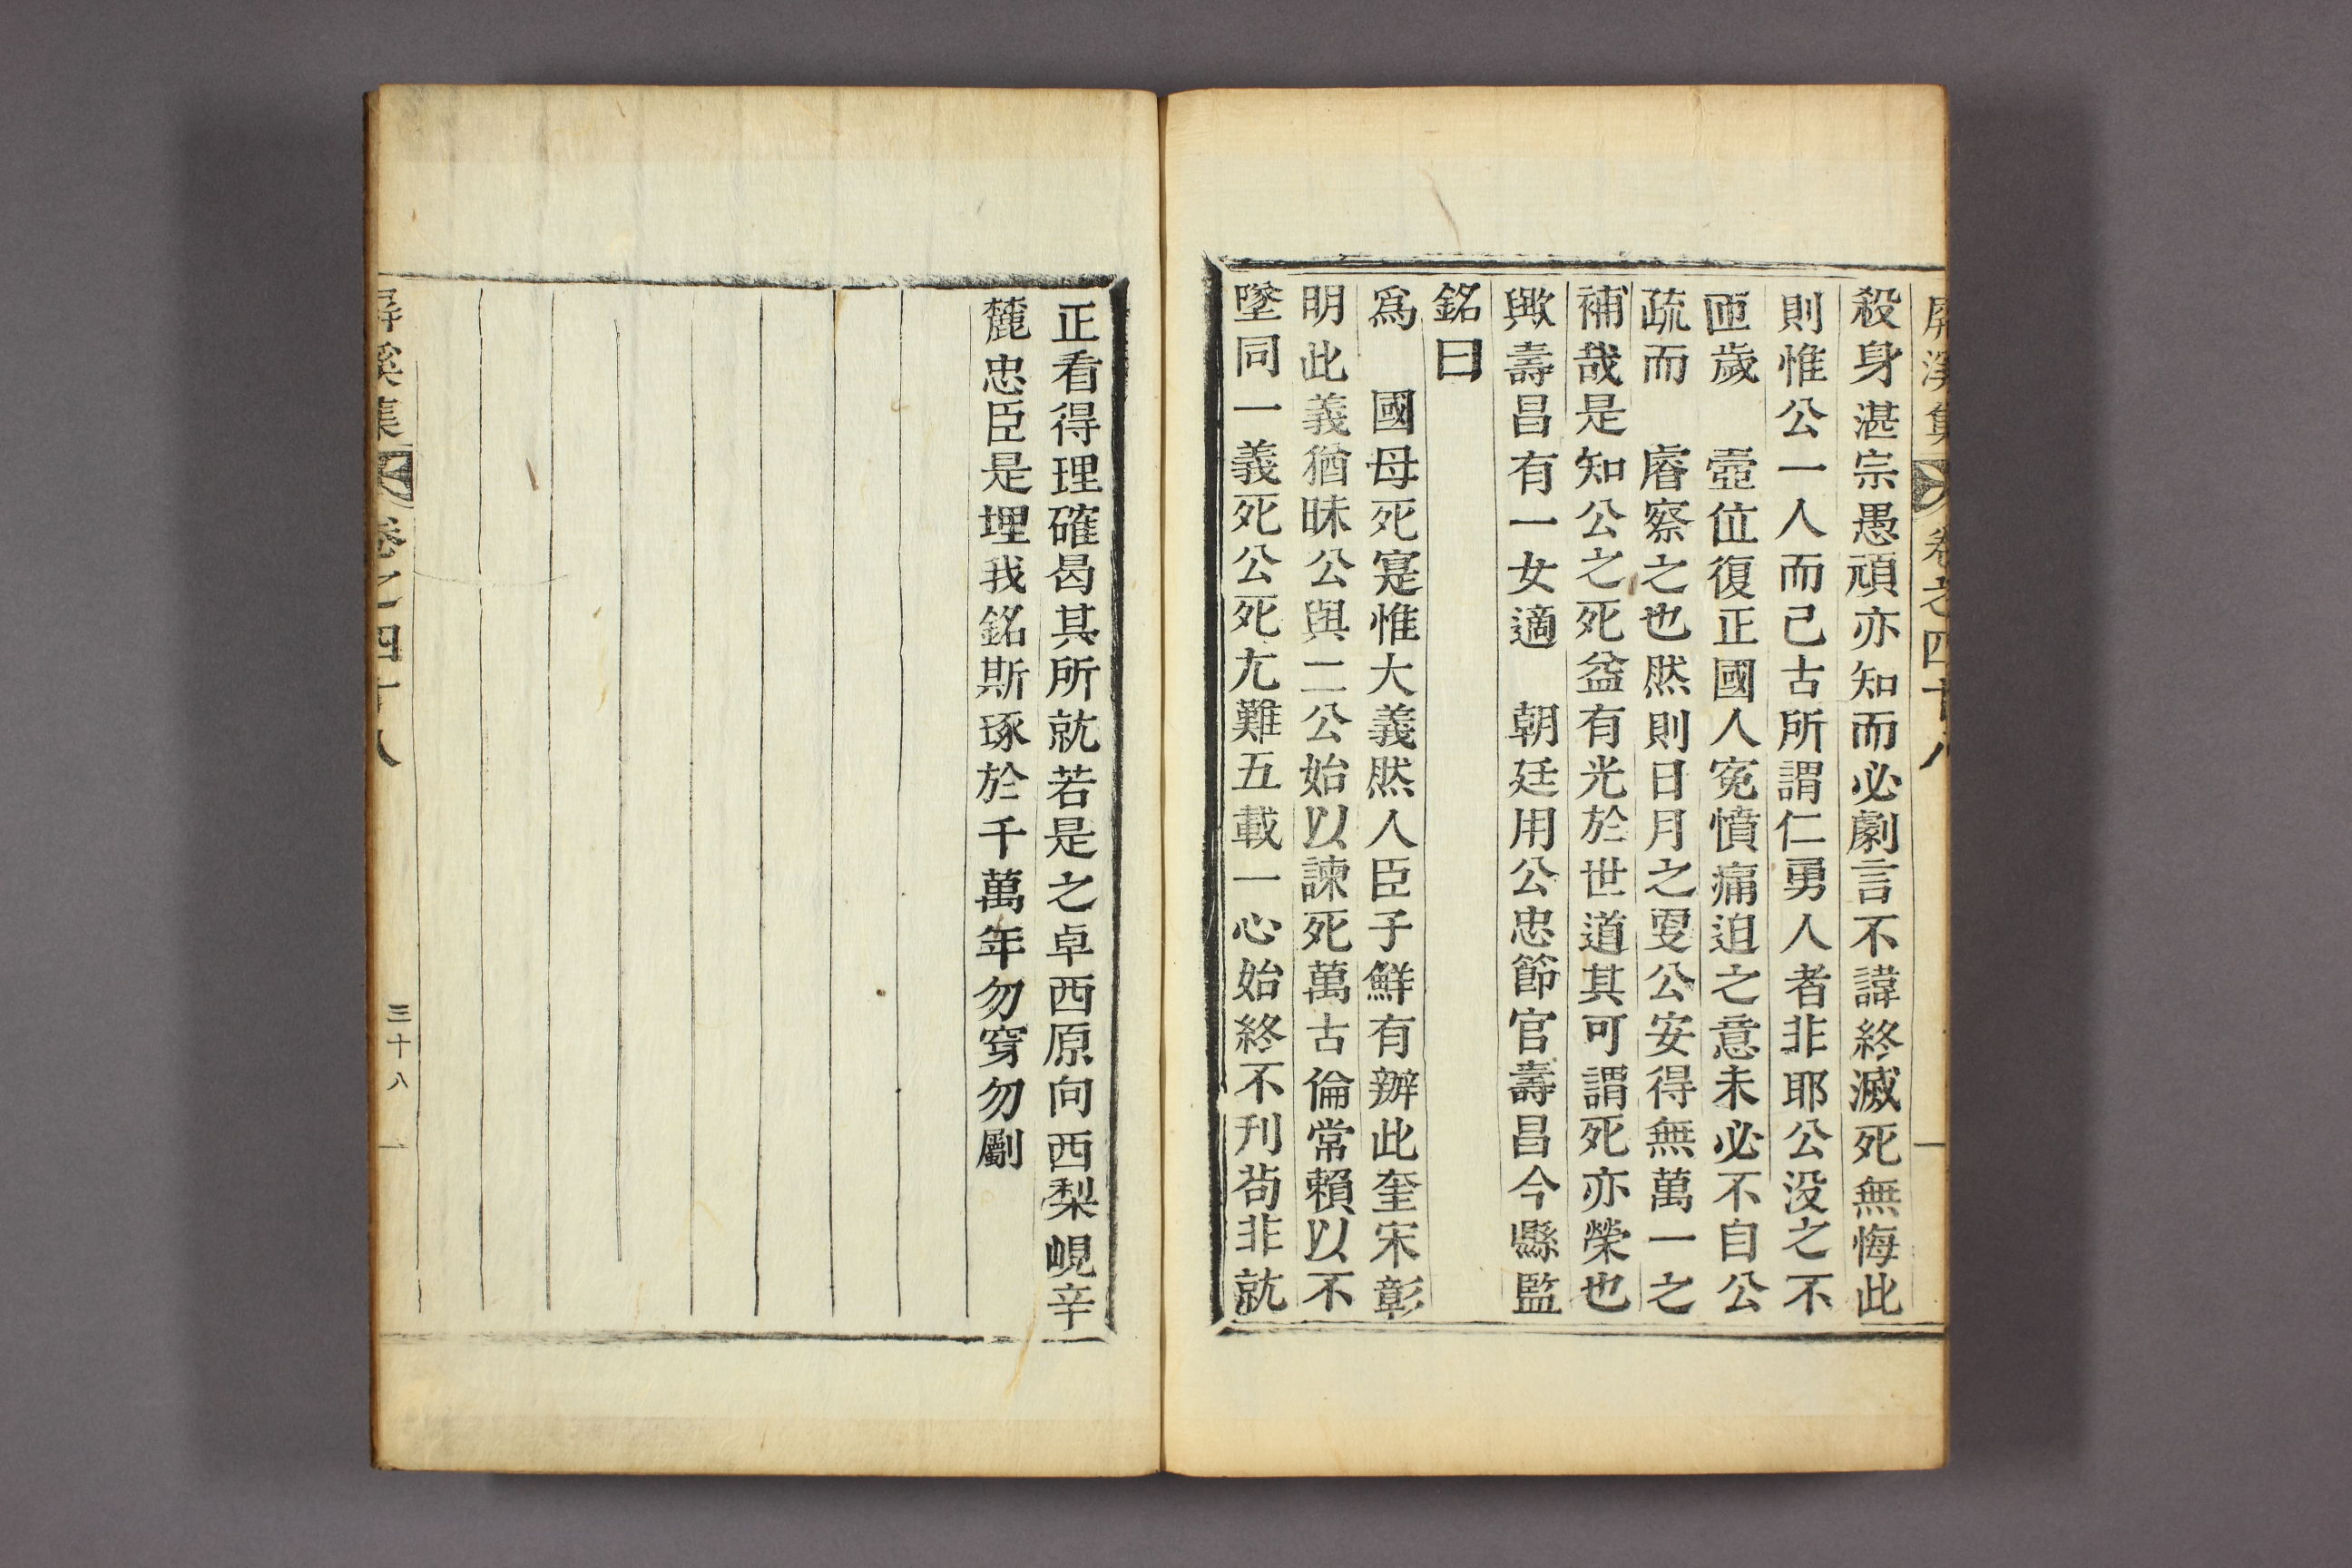 屛溪集 卷之四十八
殺身湛宗愚頑亦知而必劇言不諱終滅死無悔此
則惟公一人而已古所謂仁勇人者非耶公没之不
匝歲 壼位復正國人寃憤痛迫之意未必不自公
疏而 睿察之也然則日月之更公安得無萬一之
補哉是知公之死益有光於世道其可謂死亦榮也
歟壽昌有一女適 朝廷用公忠節官壽昌今縣監
銘曰
爲 國母死寔惟大義然人臣子鮮有辦此奎宋彰
明此義猶昧公與二公始以諫死萬古倫常賴以不
墜同一義死公死尤難五載一心始終不刋茍非就
正看得理確曷其所就若是之卓西原向西梨峴辛
麓忠臣是埋我銘斯琢於千萬年勿穿勿斸
屛溪集 卷之四十八
三十八